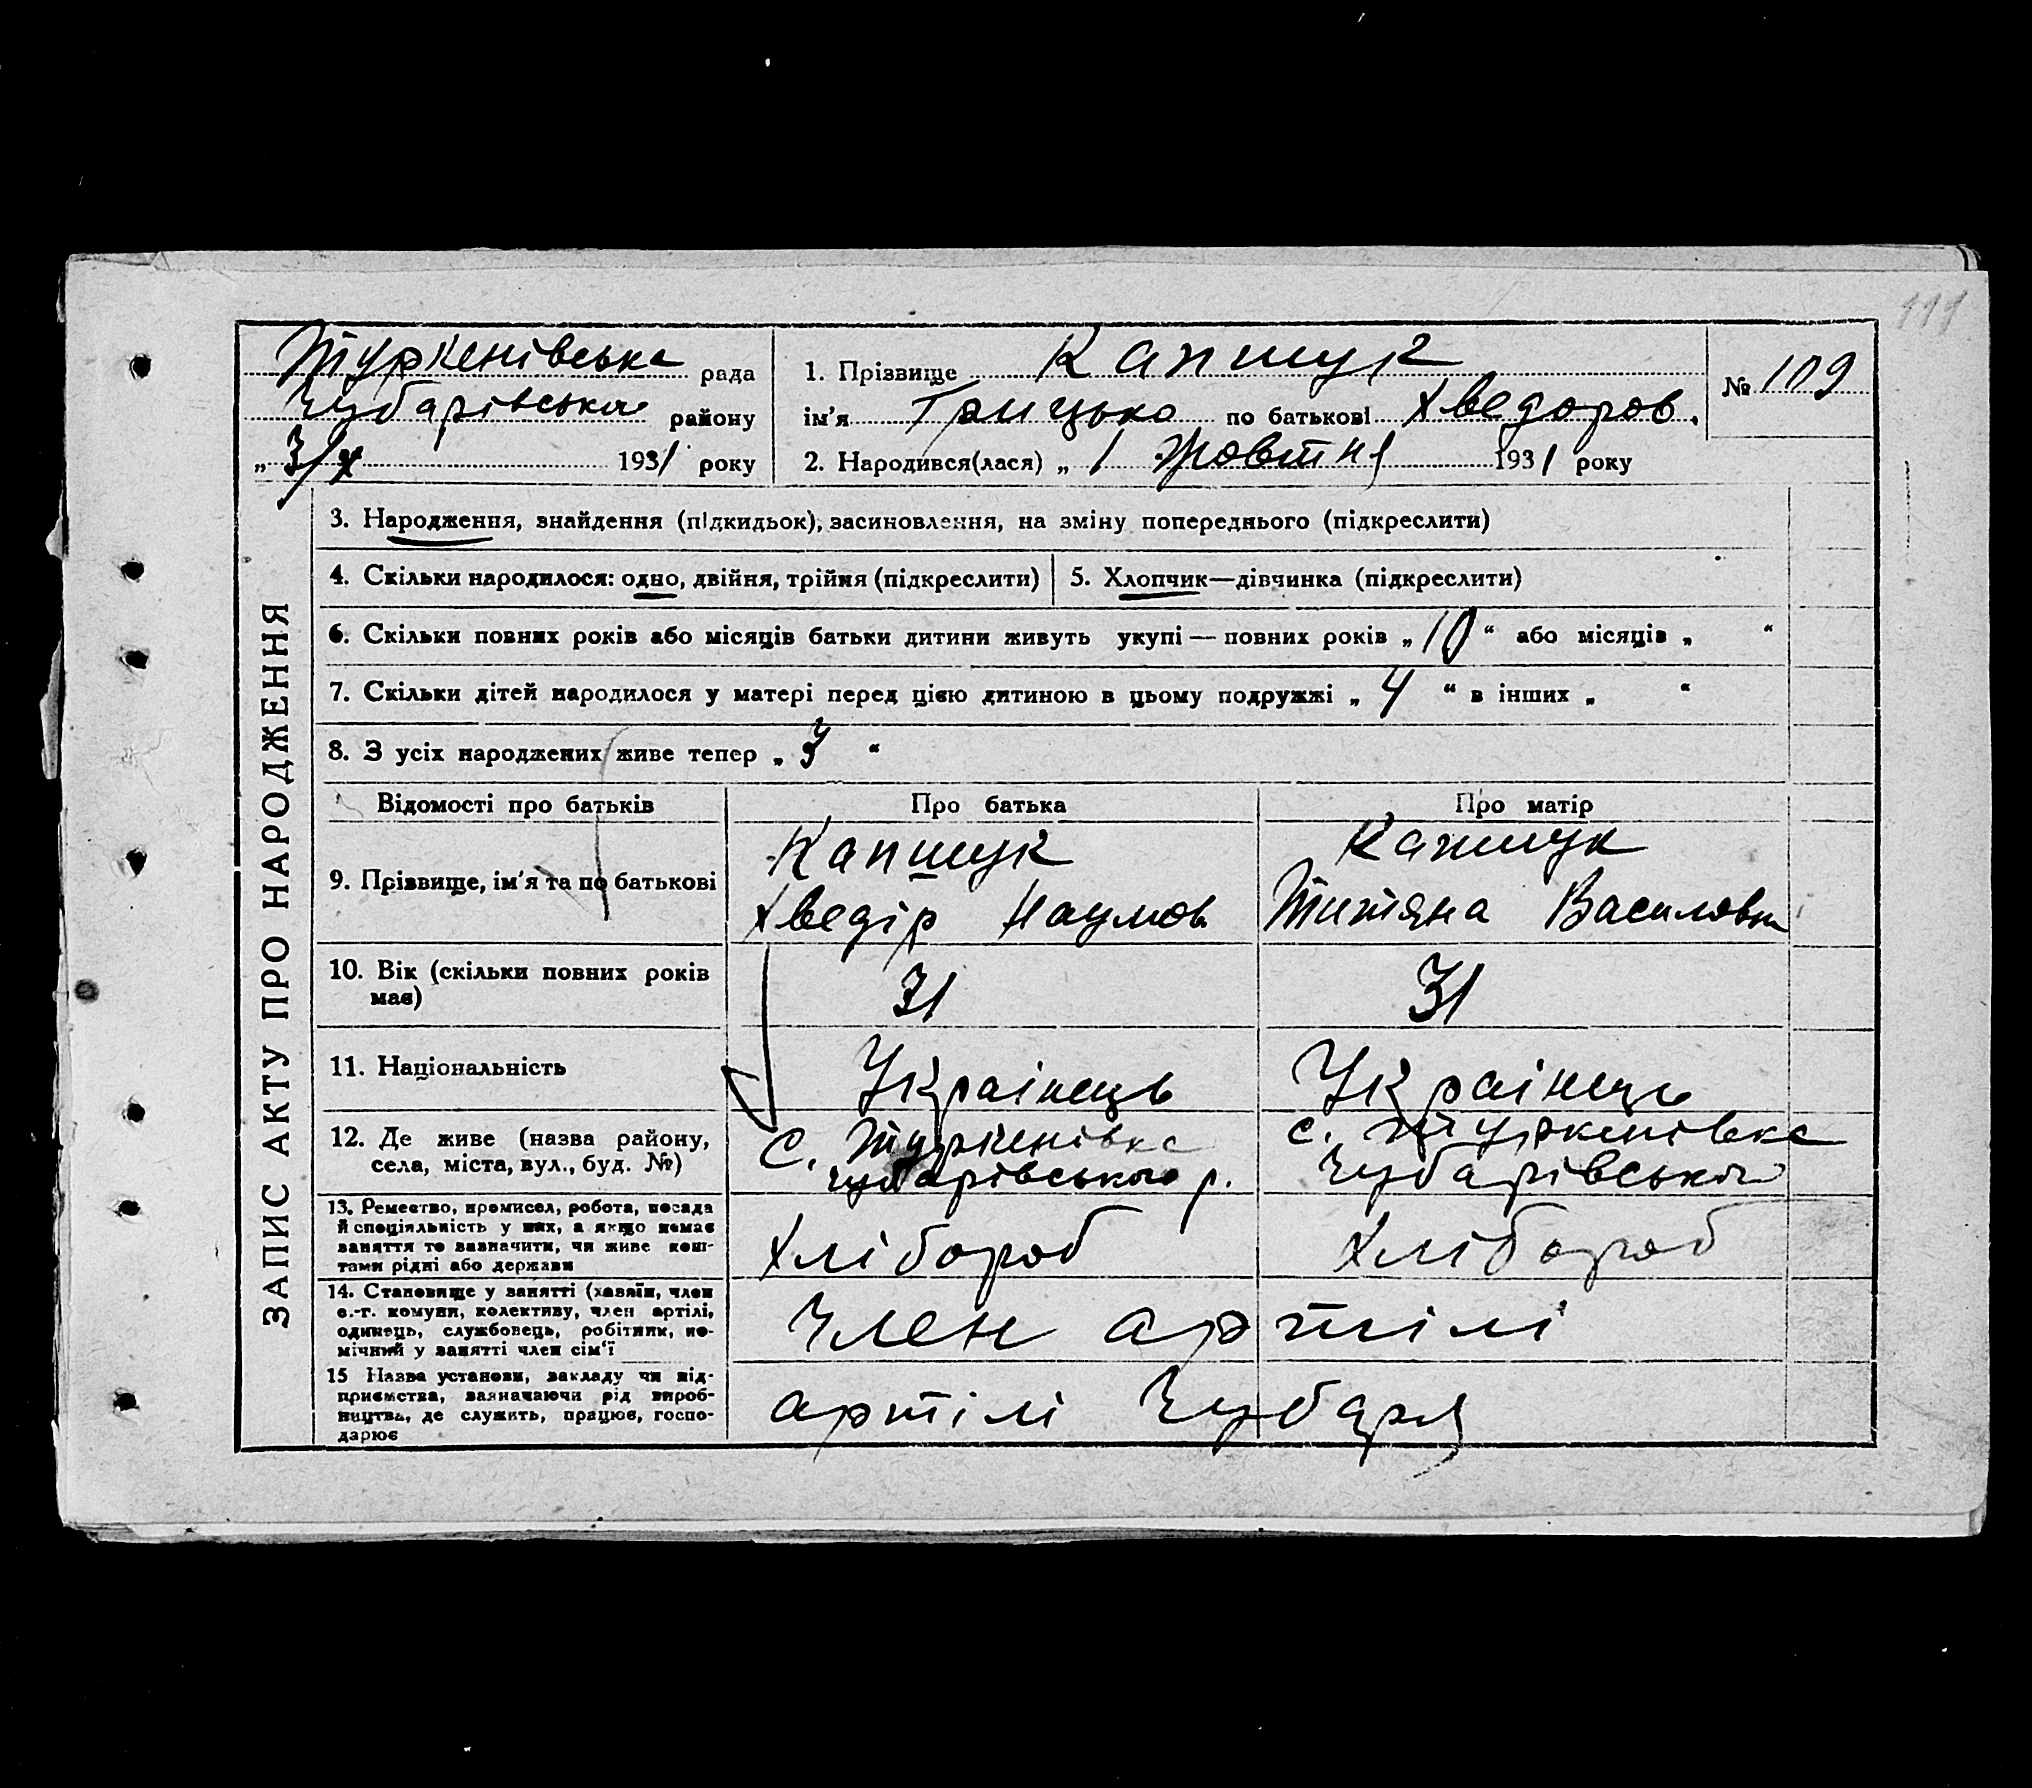 111
Туркенівська рада
Чубарівського району
„ 3/X 1931 року
1. Прізвище Капшук
ім'я Грицько по батькові Хведоров.
2. Народився(лася) „ 1 Жовтня 1931 року
№ 109
ЗАПИС АКТУ ПРО НАРОДЖЕННЯ
3. Народження, знайдення (підкидьок), засиновлення, на зміну попереднього (підкреслити)
4. Скільки народилося: одно, двійня, трійня (підкреслити)
5. Хлопчик—дівчинка (підкреслити)
6. Скільки повних років або місяців батьки дитини живуть укупі — повних років „ 10 “ або місяців „ “
7. Скільки дітей народилося у матері перед цією дитиною в цьому подружжі „ 4 “ в інших „ “
8. З усіх народжених живе тепер „ “
Відомості про батьків
Про батька
Про матір
9. Прізвище, ім'я та по батькові
Капшук
Хведір Наумов
Капшук
Титяна Василовна
10. Вік (скільки повних років
має)
31
31
11. Національність
Українець
Українець
12. Де живе (назва району,
села, міста, вул., буд. №)
С. Туркенівка
Чубарівського р.
с. Туркенівка
Чубарівського
13. Ремество, промисел, робота, посада
й спеціяльність у них, а якщо немає
заняття то зазначити, чи живе кош-
тами рідні або держави
Хлібороб
Хлібороб
14. Становище у занятті (хазяїн, член
с.-г. комуни, колективу, член артілі,
одинець, службовець, робітник, по-
мічний у занятті член сім'ї
Член артілі
15 Назва установи, закладу чи під-
приємства, зазначаючи рід вироб-
ництва, де служить, працює, госпо-
дарює
артілі Чубаря